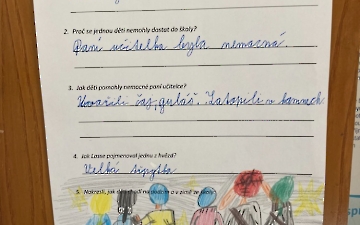 2. Proč se jednou děti nemohly dostat do školy?
Paní učitelka byla nemocná.
3. Jak děti pomohly nemocné paní učitelce?
Uvařili čaj, guláš. Zatopili v kamnech
4. Jak Lasse pojmenoval jednu z hvězd?
Velká
5. Nakresli, jak